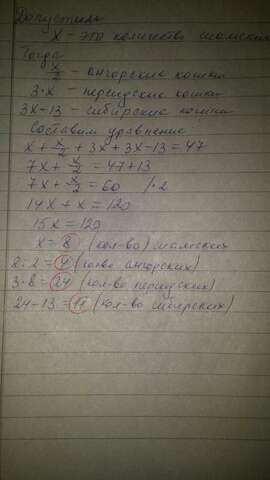 Допустим
x - это количество сиамских
Тогда
x/2 - ангорские кошки
3·x - персидские кошки
3x-13 - сибирские кошки
Составим уравнение
x + x/2 + 3x + 3x - 13 = 47
7x + x/2 = 47+13
7x + x/2 = 60 /·2
14x + x = 120
15x = 120
x = 8 (кол-во) сиамских
8:2 = 4 (кол-во ангорских)
3·8 = 24 (кол-во персидских)
24-13 = 11 (кол-во сибирских)